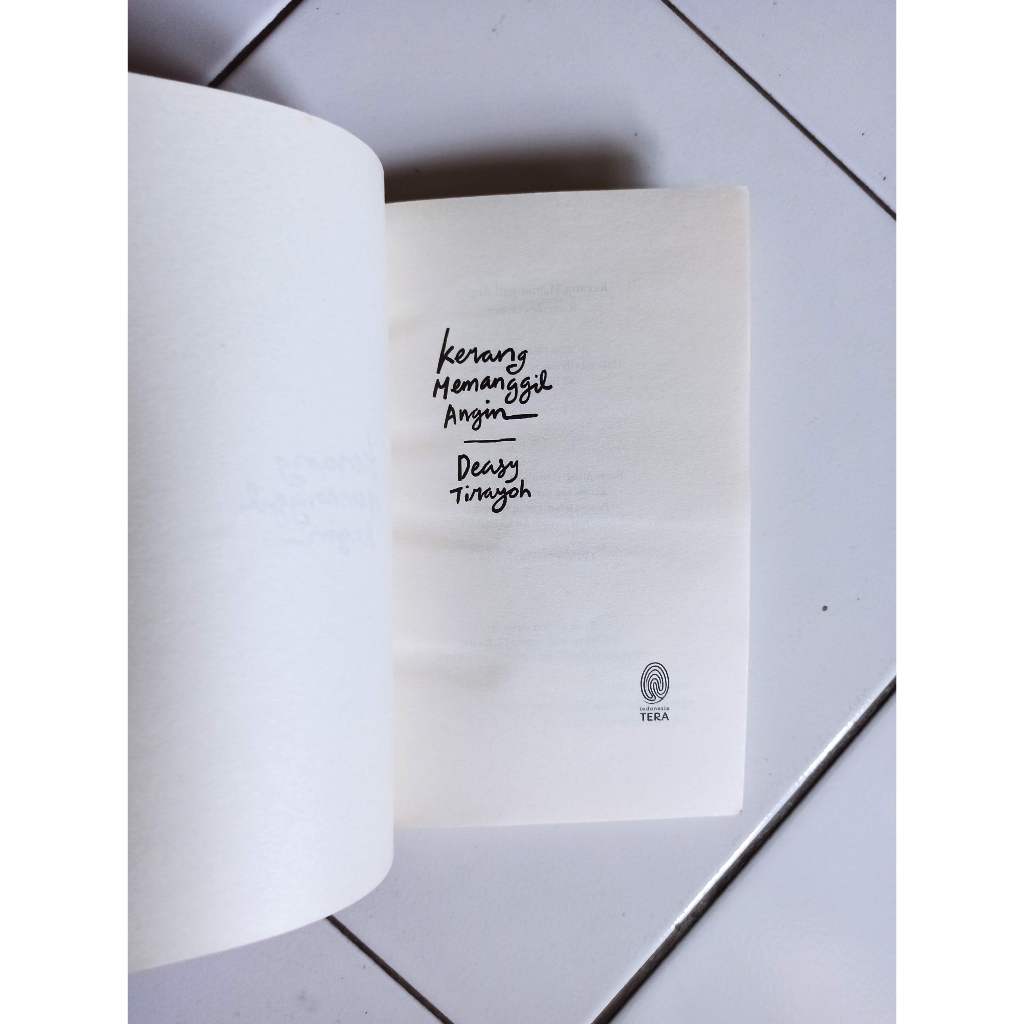 Kerang
Memanggil
Angin
Deasy
Tirayoh
indonesia
TERA